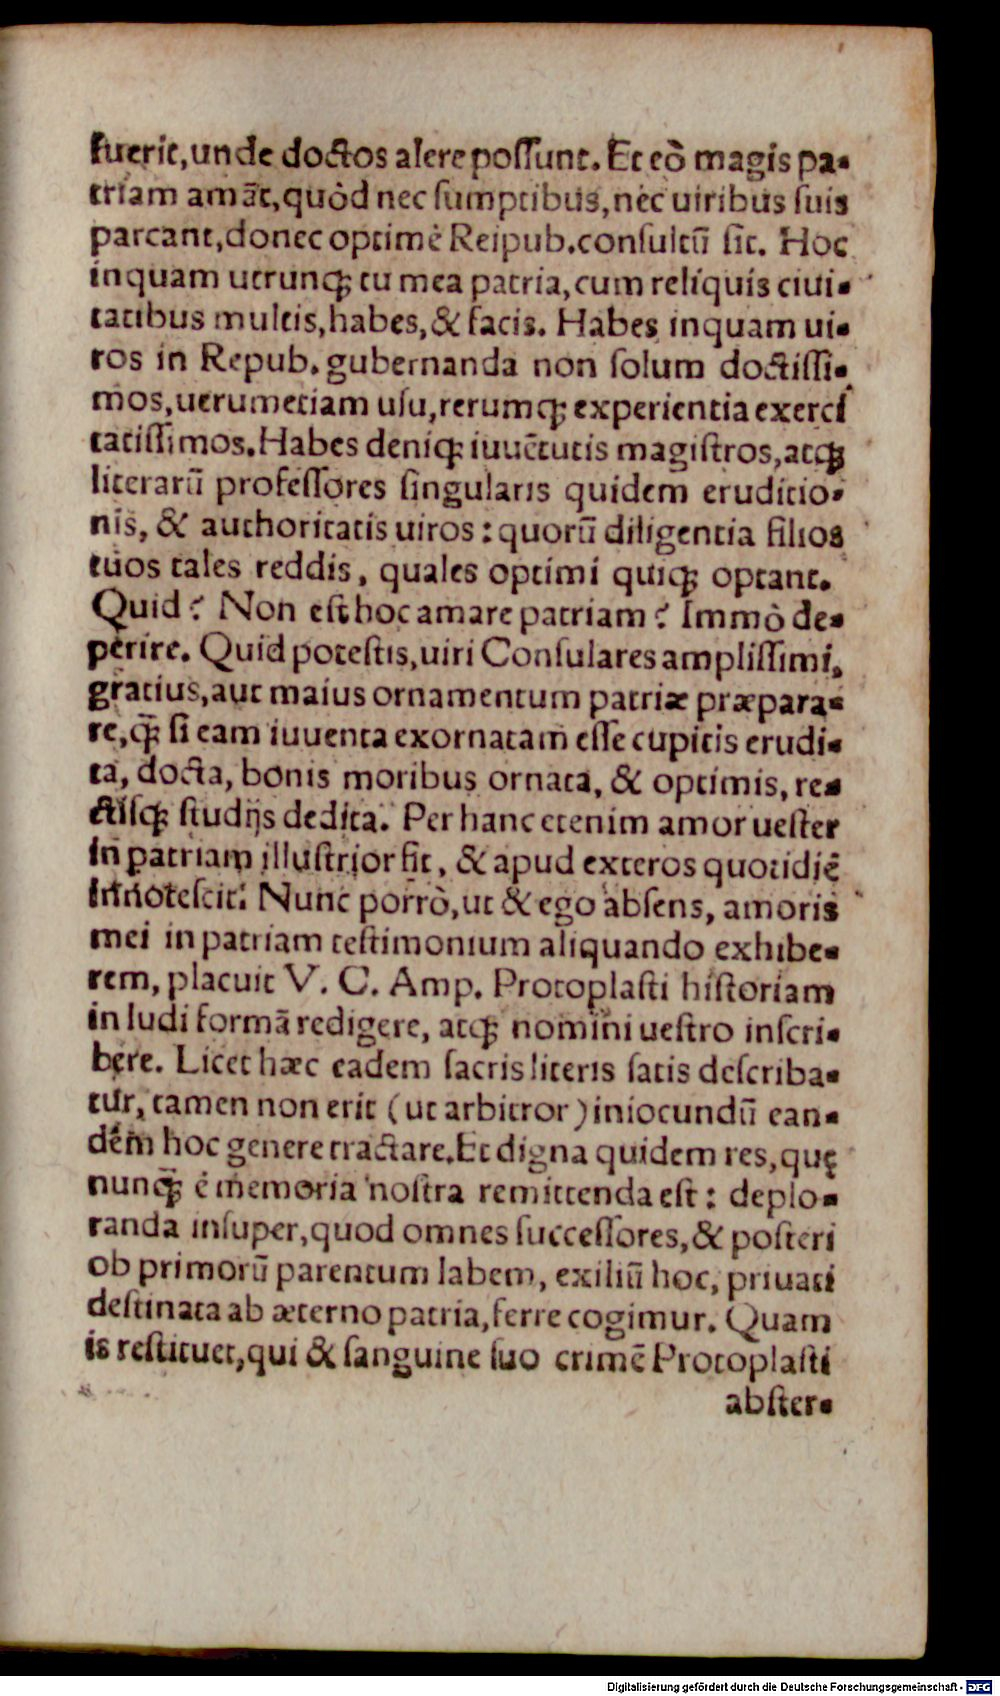 fuerit,unde doctos alere poſſunt. Et eò magis pa-
triam amāt,quòd nec ſumptibus,nec uiribus ſuis
parcant,donec optimè Reipub.conſultū ſit. Hoc
inquam utrunqꝫ tu mea patria,cum reliquis ciui-
tatibus multis,habes,& facis. Habes inquam ui-
ros in Repub.gubernanda non ſolum doctiſſi-
mos,uerumetiam uſu,rerumqꝫ experientia exerci
tatiſſimos.Habes deniqꝫ iuuētutis magiſtros,atqꝫ
literarū profeſſores ſingularis quidem eruditio-
nis, & authoritatis uiros : quorū diligentia filios
tuos tales reddis, quales optimi quiqꝫ optant.
Quid? Non eſt hoc amare patriam? Immò de-
perire. Quid poteſtis,uiri Conſulares ampliſſimi,
gratius,aut maius ornamentum patriæ præpara-
re,q̄ꝫ ſi eam iuuenta exornatam eſſe cupitis erudi-
ta, docta, bonis moribus ornata, & optimis, re-
ctiſqꝫ ſtudijs dedita. Per hanc etenim amor ueſter
in patriam illuſtrior fit, & apud exteros quotidiē
innoteſcit. Nunc porrò,ut & ego abſens, amoris
mei in patriam teſtimonium aliquando exhibe-
rem, placuit V. C. Amp. Protoplaſti hiſtoriam
in ludi formā redigere, atqꝫ nomini ueſtro inſcri-
bere. Licet hæc eadem ſacris literis ſatis deſcriba-
tur, tamen non erit (ut arbitror) iniocundū ean-
dem hoc genere tractare.Et digna quidem res,quę
nunq̄ꝫ è memoria noſtra remittenda eſt : deplo-
randa inſuper,quod omnes ſucceſſores,& poſteri
ob primorū parentum labem, exiliū hoc, priuati
deſtinata ab æterno patria,ferre cogimur. Quam
is reſtituet,qui & ſanguine ſuo crimē Protoplaſti
abſter-
Digitalisierung gefördert durch die Deutsche Forschungsgemeinschaft - DFG